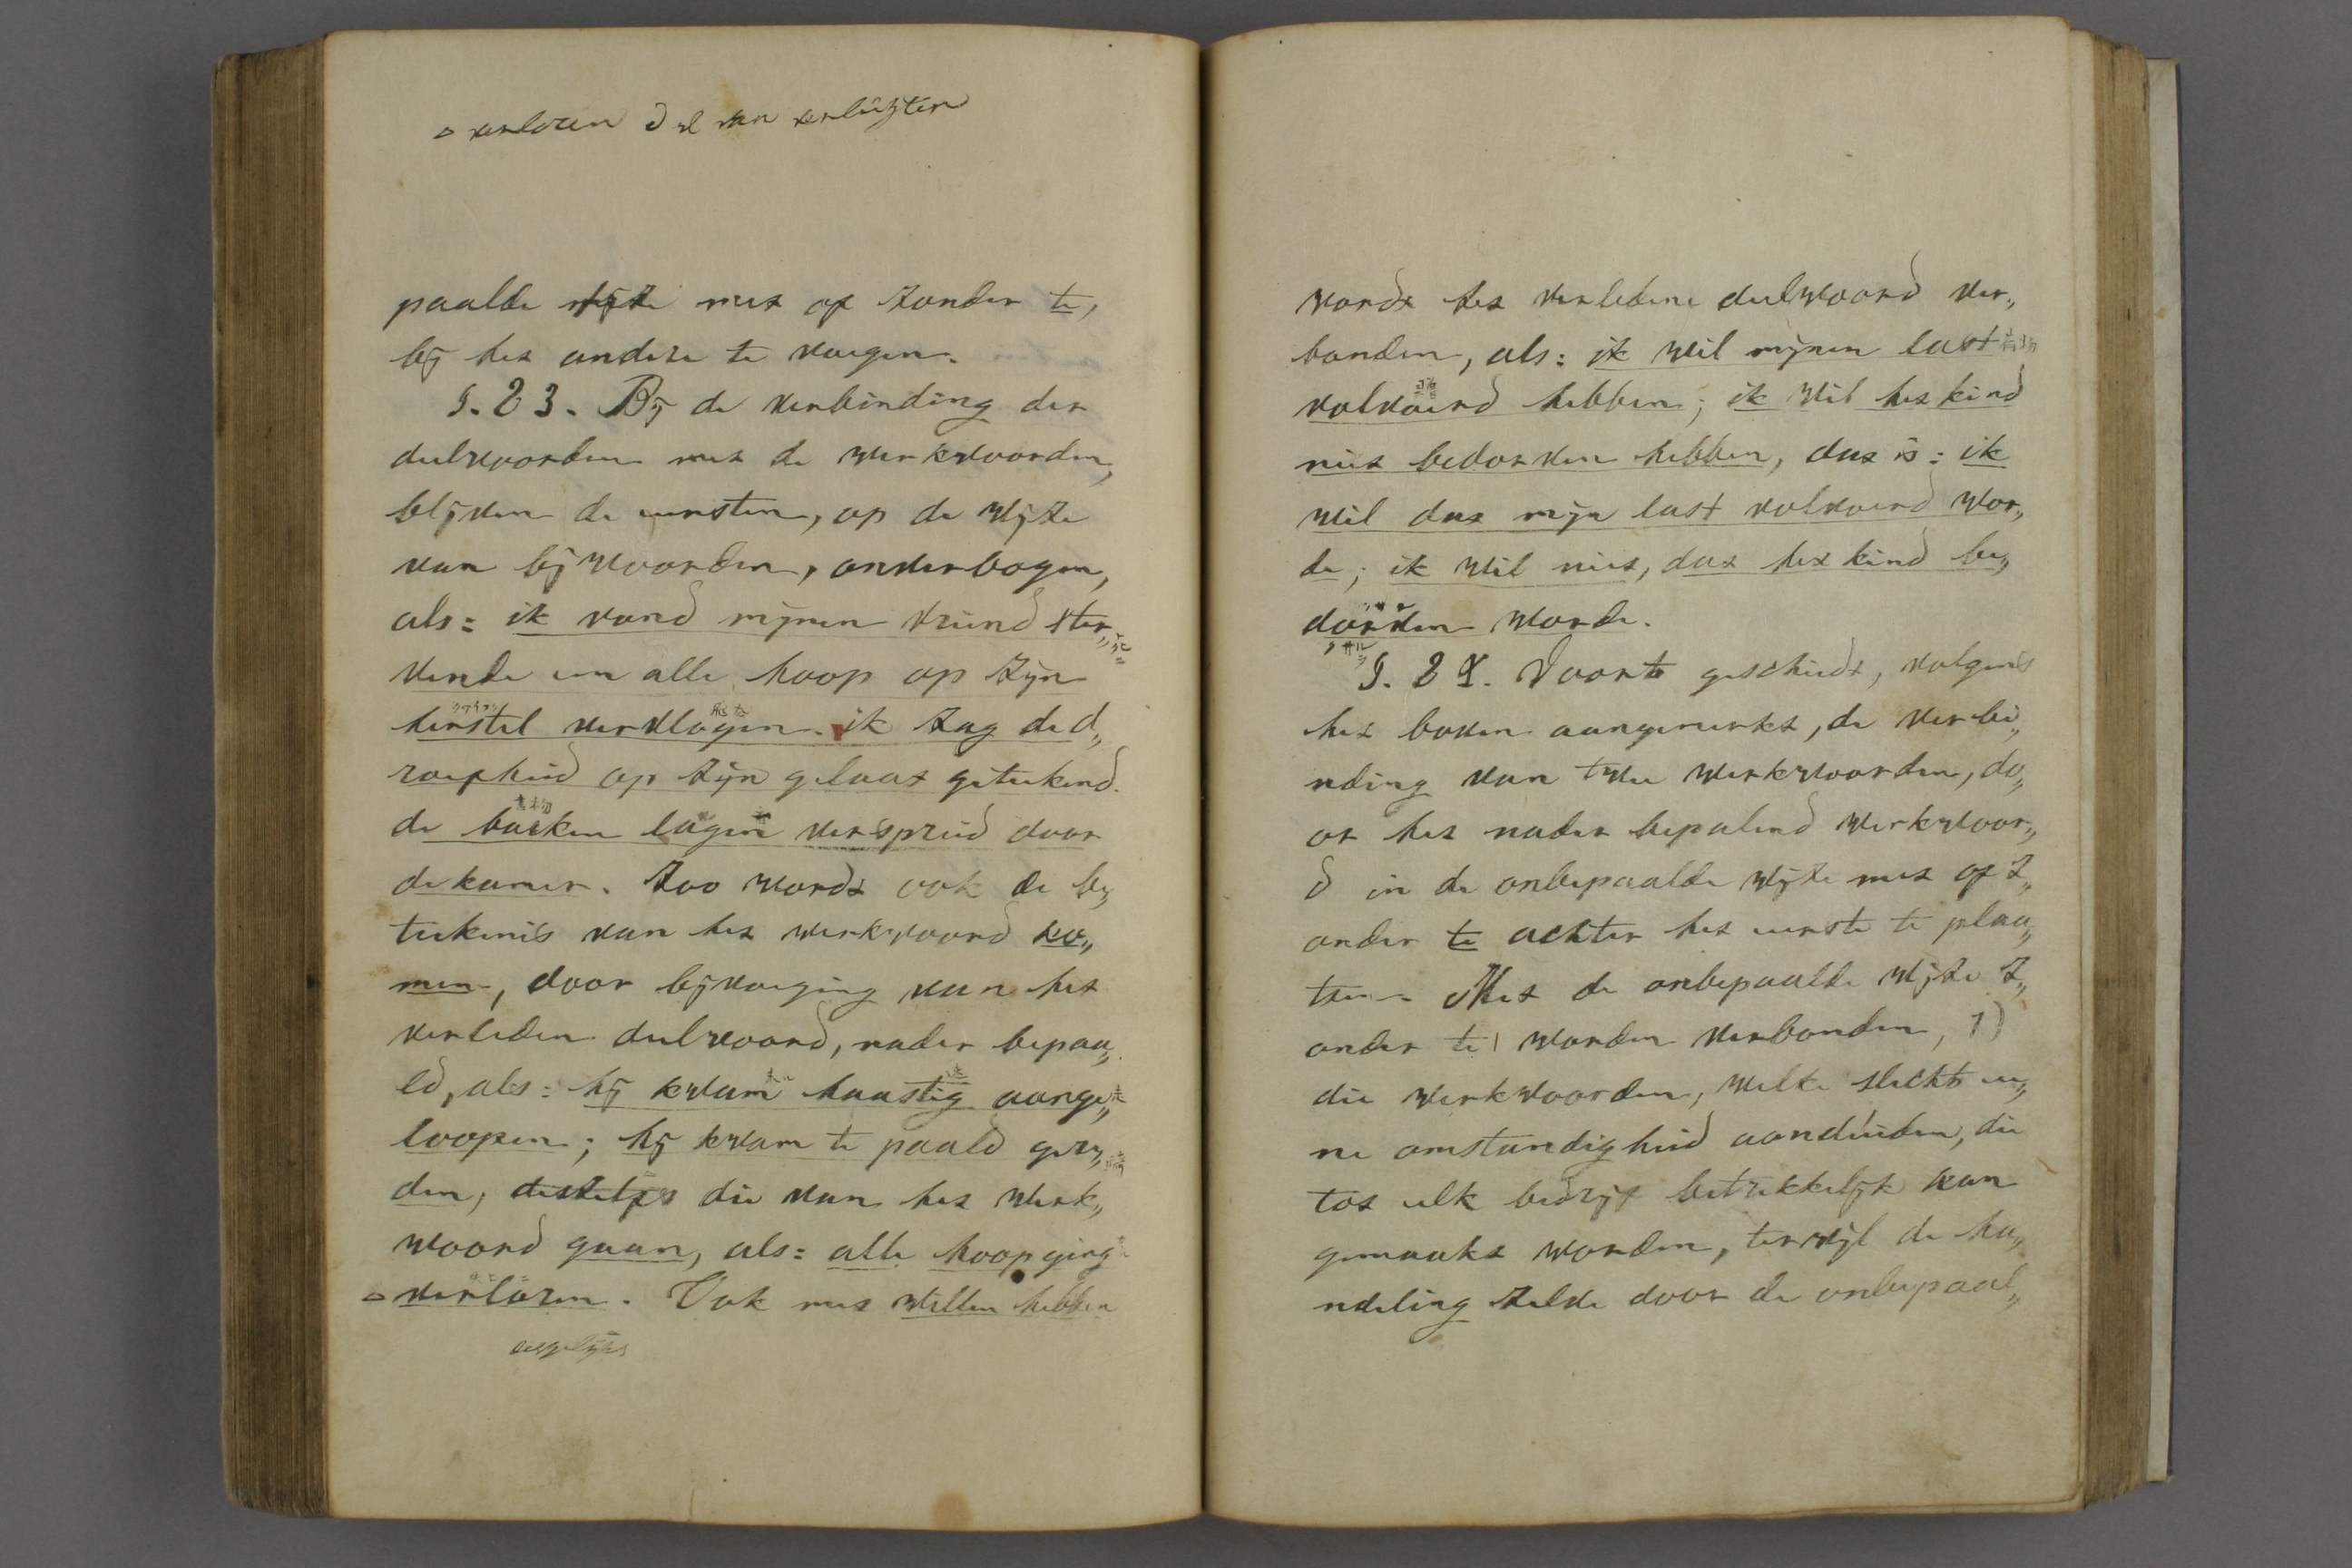 ▵ verloren d w van verliezten
paalde wijze met of zonder te,
bij het andere te voegen.
§. 23. Bij de verbinding der
deelwoorden met de werkwoorden,
blijven de eersten, op de wijze
van bijwoorden, onverbogen,
als: ik vond mijnen vriend ster„
vende en alle hoop op zijn
herstel vervlogen. ik zag de d„
roefheid op zijn gelaat geteekend.
de boeken lagen verspreid door
de kamer. Zoo wordt ook de be„
teekenis van het werkwoord ko„
men, door bijvoeging van het
verleden deelwoord, nader bepaa„
ld, als: hij kwam haastig aange„
loopen; hij kwam te paald gere„
den, die van het werk„
woord gaan, als: alle hoop ging
▵ verloren. Ook met willen hebben
desgelijks
wordt het verledene deelwoord ver„
bonden, als: ik wil mijnen last
volvoerd hebben; ik wil het kind
niet bedorven hebben, dat is: ik
wil dat mijn last volvoerd wor„
de; ik wil niet, dat het kind be„
dorven worde.
§. 24. Voorts geschiedt, volgens
het boven aangemerkt, de verbi„
nding van twee werkwoorden, do„
or het nader bepalend werkwoor„
d in de onbepaalde wijze met of z„
onder te achter het eerste te plaa„
tzen. Met de onbepaalde wijze z„
onder te worden verbonden, 1)
die werkwoorden, welke slechts ee„
ne omstandigheid aanduiden, die
tot elk bedrijf betrekkelijk kan
gemaakt worden, terwijl de ha„
ndeling zelve door de onbepaal„